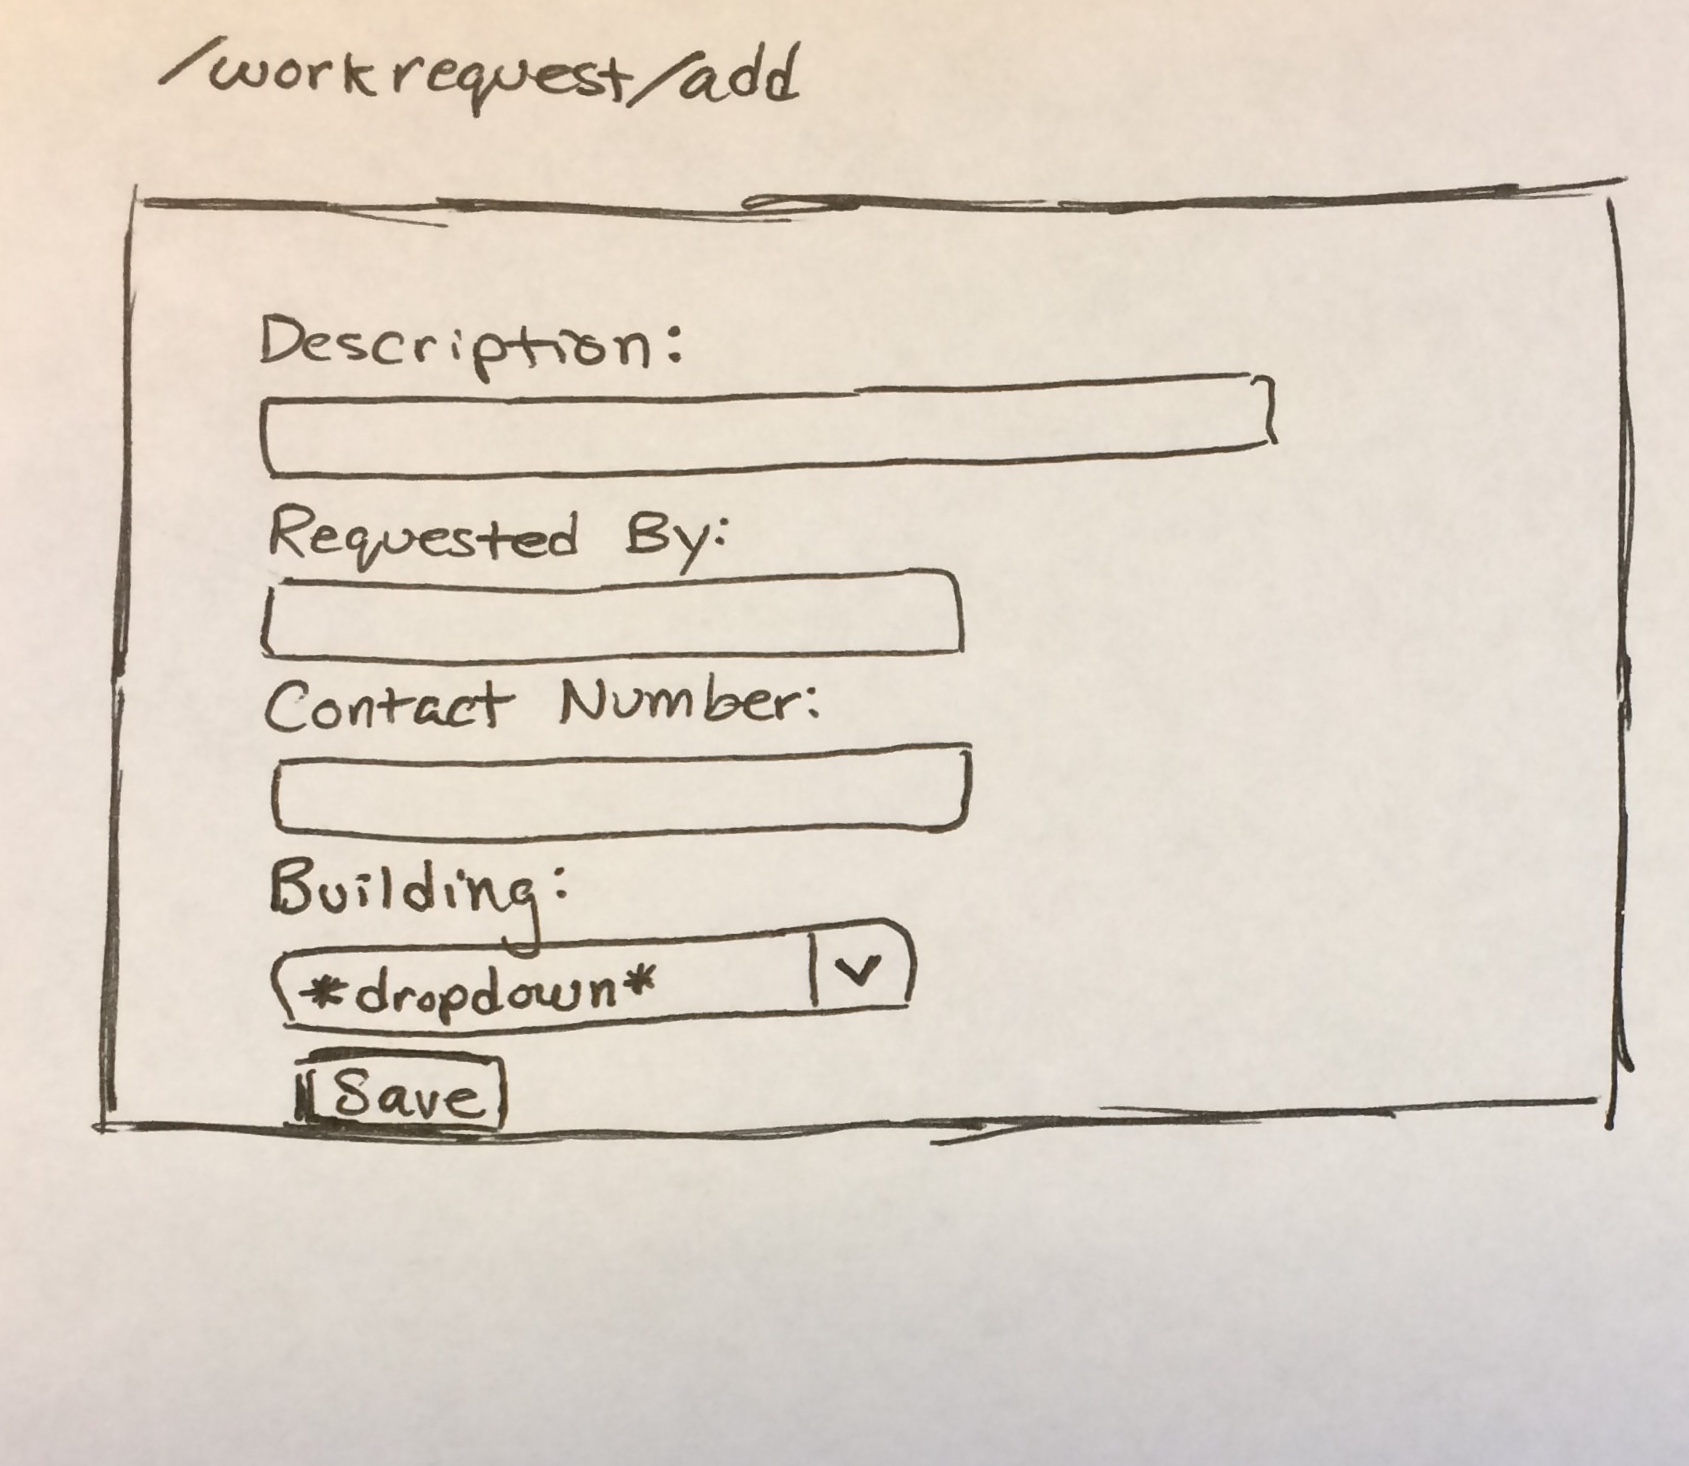 /workrequest/add
Description:
Requested By:
Contact Number:
Building:
*dropdown*
Save